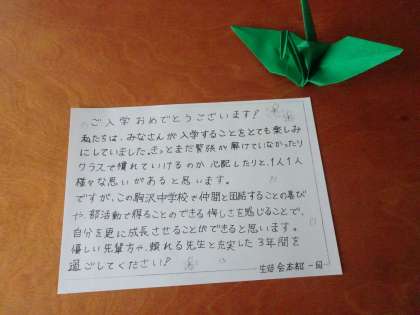 ご入学おめでとうございます!
私たちは、みなさんが入学することをとても楽しみ
にしていました。きっとまだ緊張が解けていなかったり
クラスで慣れていけるのか心配したりと、1人1人
様々な思いがあると思います。
ですが、この駒沢中学校で仲間と団結することの喜び
や、部活動で得ることのできる悔しさを感じることで、
自分を更に成長させることができると思います。
優しい先輩方や、頼れる先生と充実した3年間を
過ごしてください!
生徒会本部一同